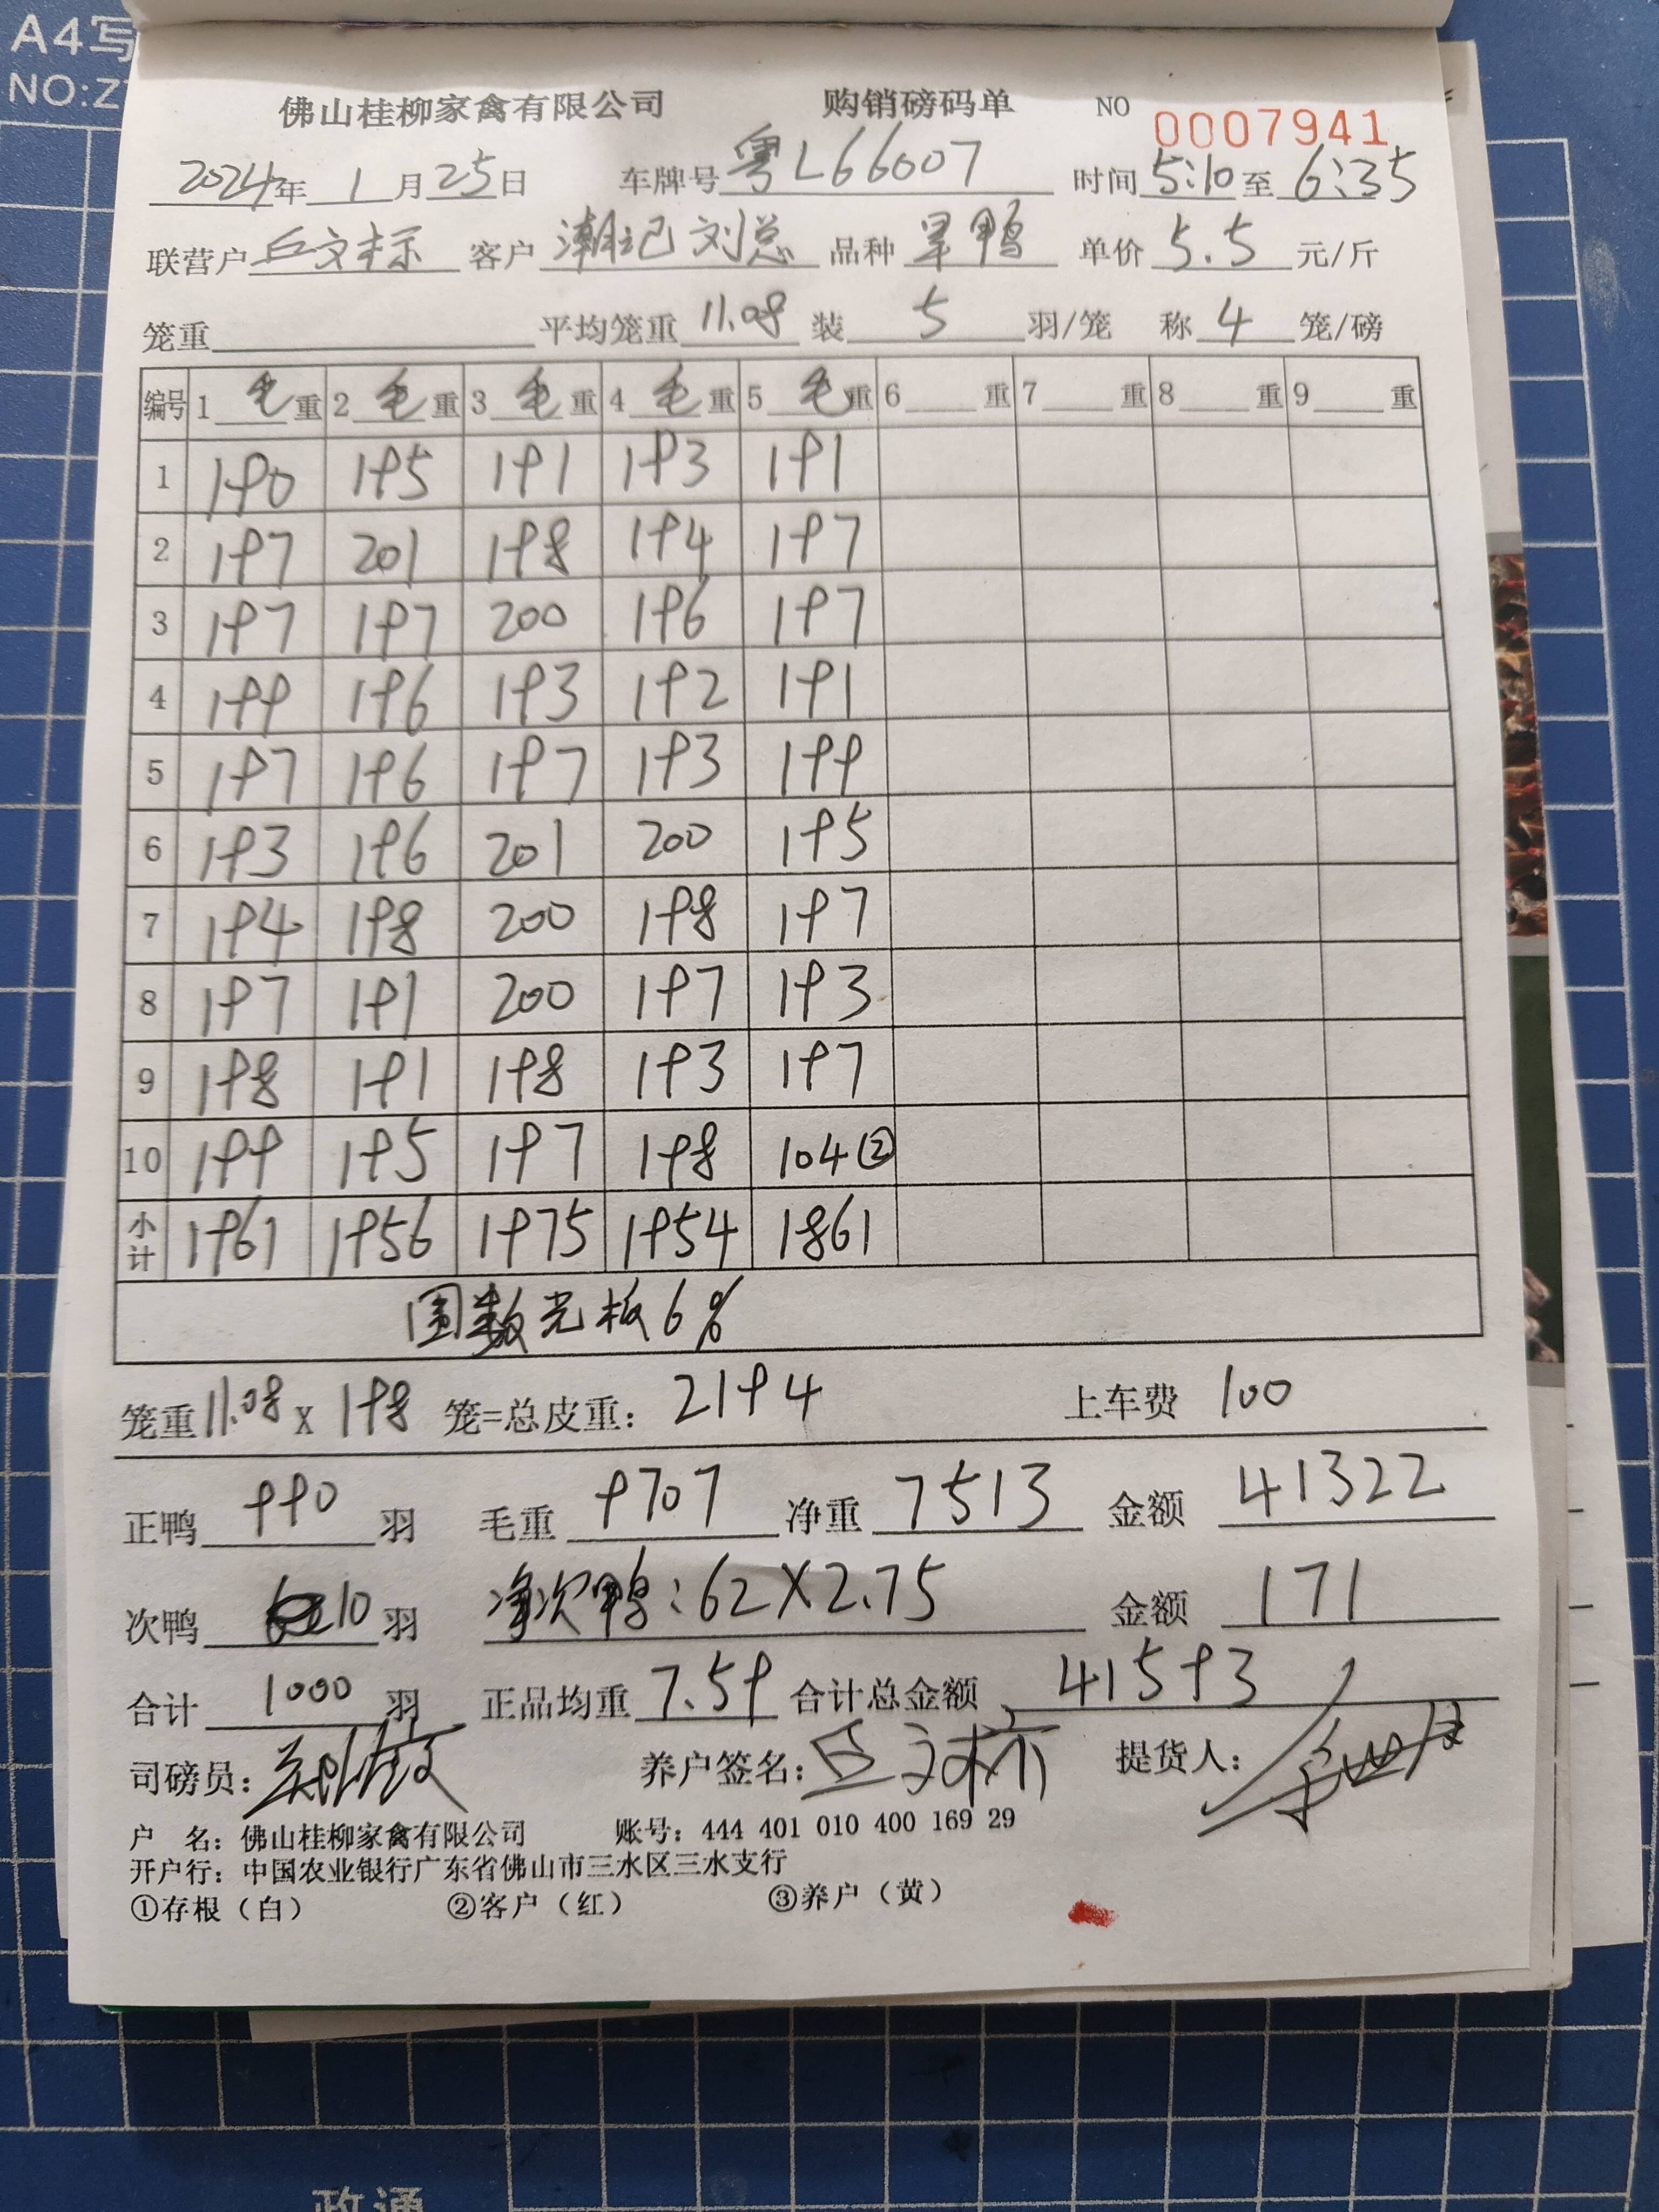 A4写
NO:Z
佛山桂柳家禽有限公司 购销磅码单 NO 0007941
2024年 1月25日 车牌号 粤L66007 时间 5:10 至 6:35
联营户 丘文标 客户 潮记 刘总 品种 旱鸭 单价 5.5 元/斤
笼重 平均笼重 11.08 装 5 羽/笼 称 4 笼/磅
编号 1 毛 重 2 毛 重 3 毛 重 4 毛 重 5 毛 重 6 重 7 重 8 重 9 重
1 190 195 191 193 191
2 197 201 198 194 197
3 197 197 200 196 197
4 199 196 193 192 191
5 197 196 197 193 199
6 193 196 201 200 195
7 194 198 200 198 197
8 197 191 200 197 193
9 198 191 198 193 197
10 199 195 197 198 104②
小计 1961 1956 1975 1954 1861
围数光板6%
笼重 11.08 X 198 笼=总皮重: 2194 上车费 100
正鸭 990 羽 毛重 9707 净重 7513 金额 41322
次鸭 10 羽 净次鸭:62X2.75 金额 171
合计 1000 羽 正品均重 7.59 合计总金额 41593
司磅员: 养户签名: 丘文标 提货人:
户 名: 佛山桂柳家禽有限公司 账号: 444 401 010 400 169 29
开户行: 中国农业银行广东省佛山市三水区三水支行
①存根(白) ②客户(红) ③养户(黄)
政通